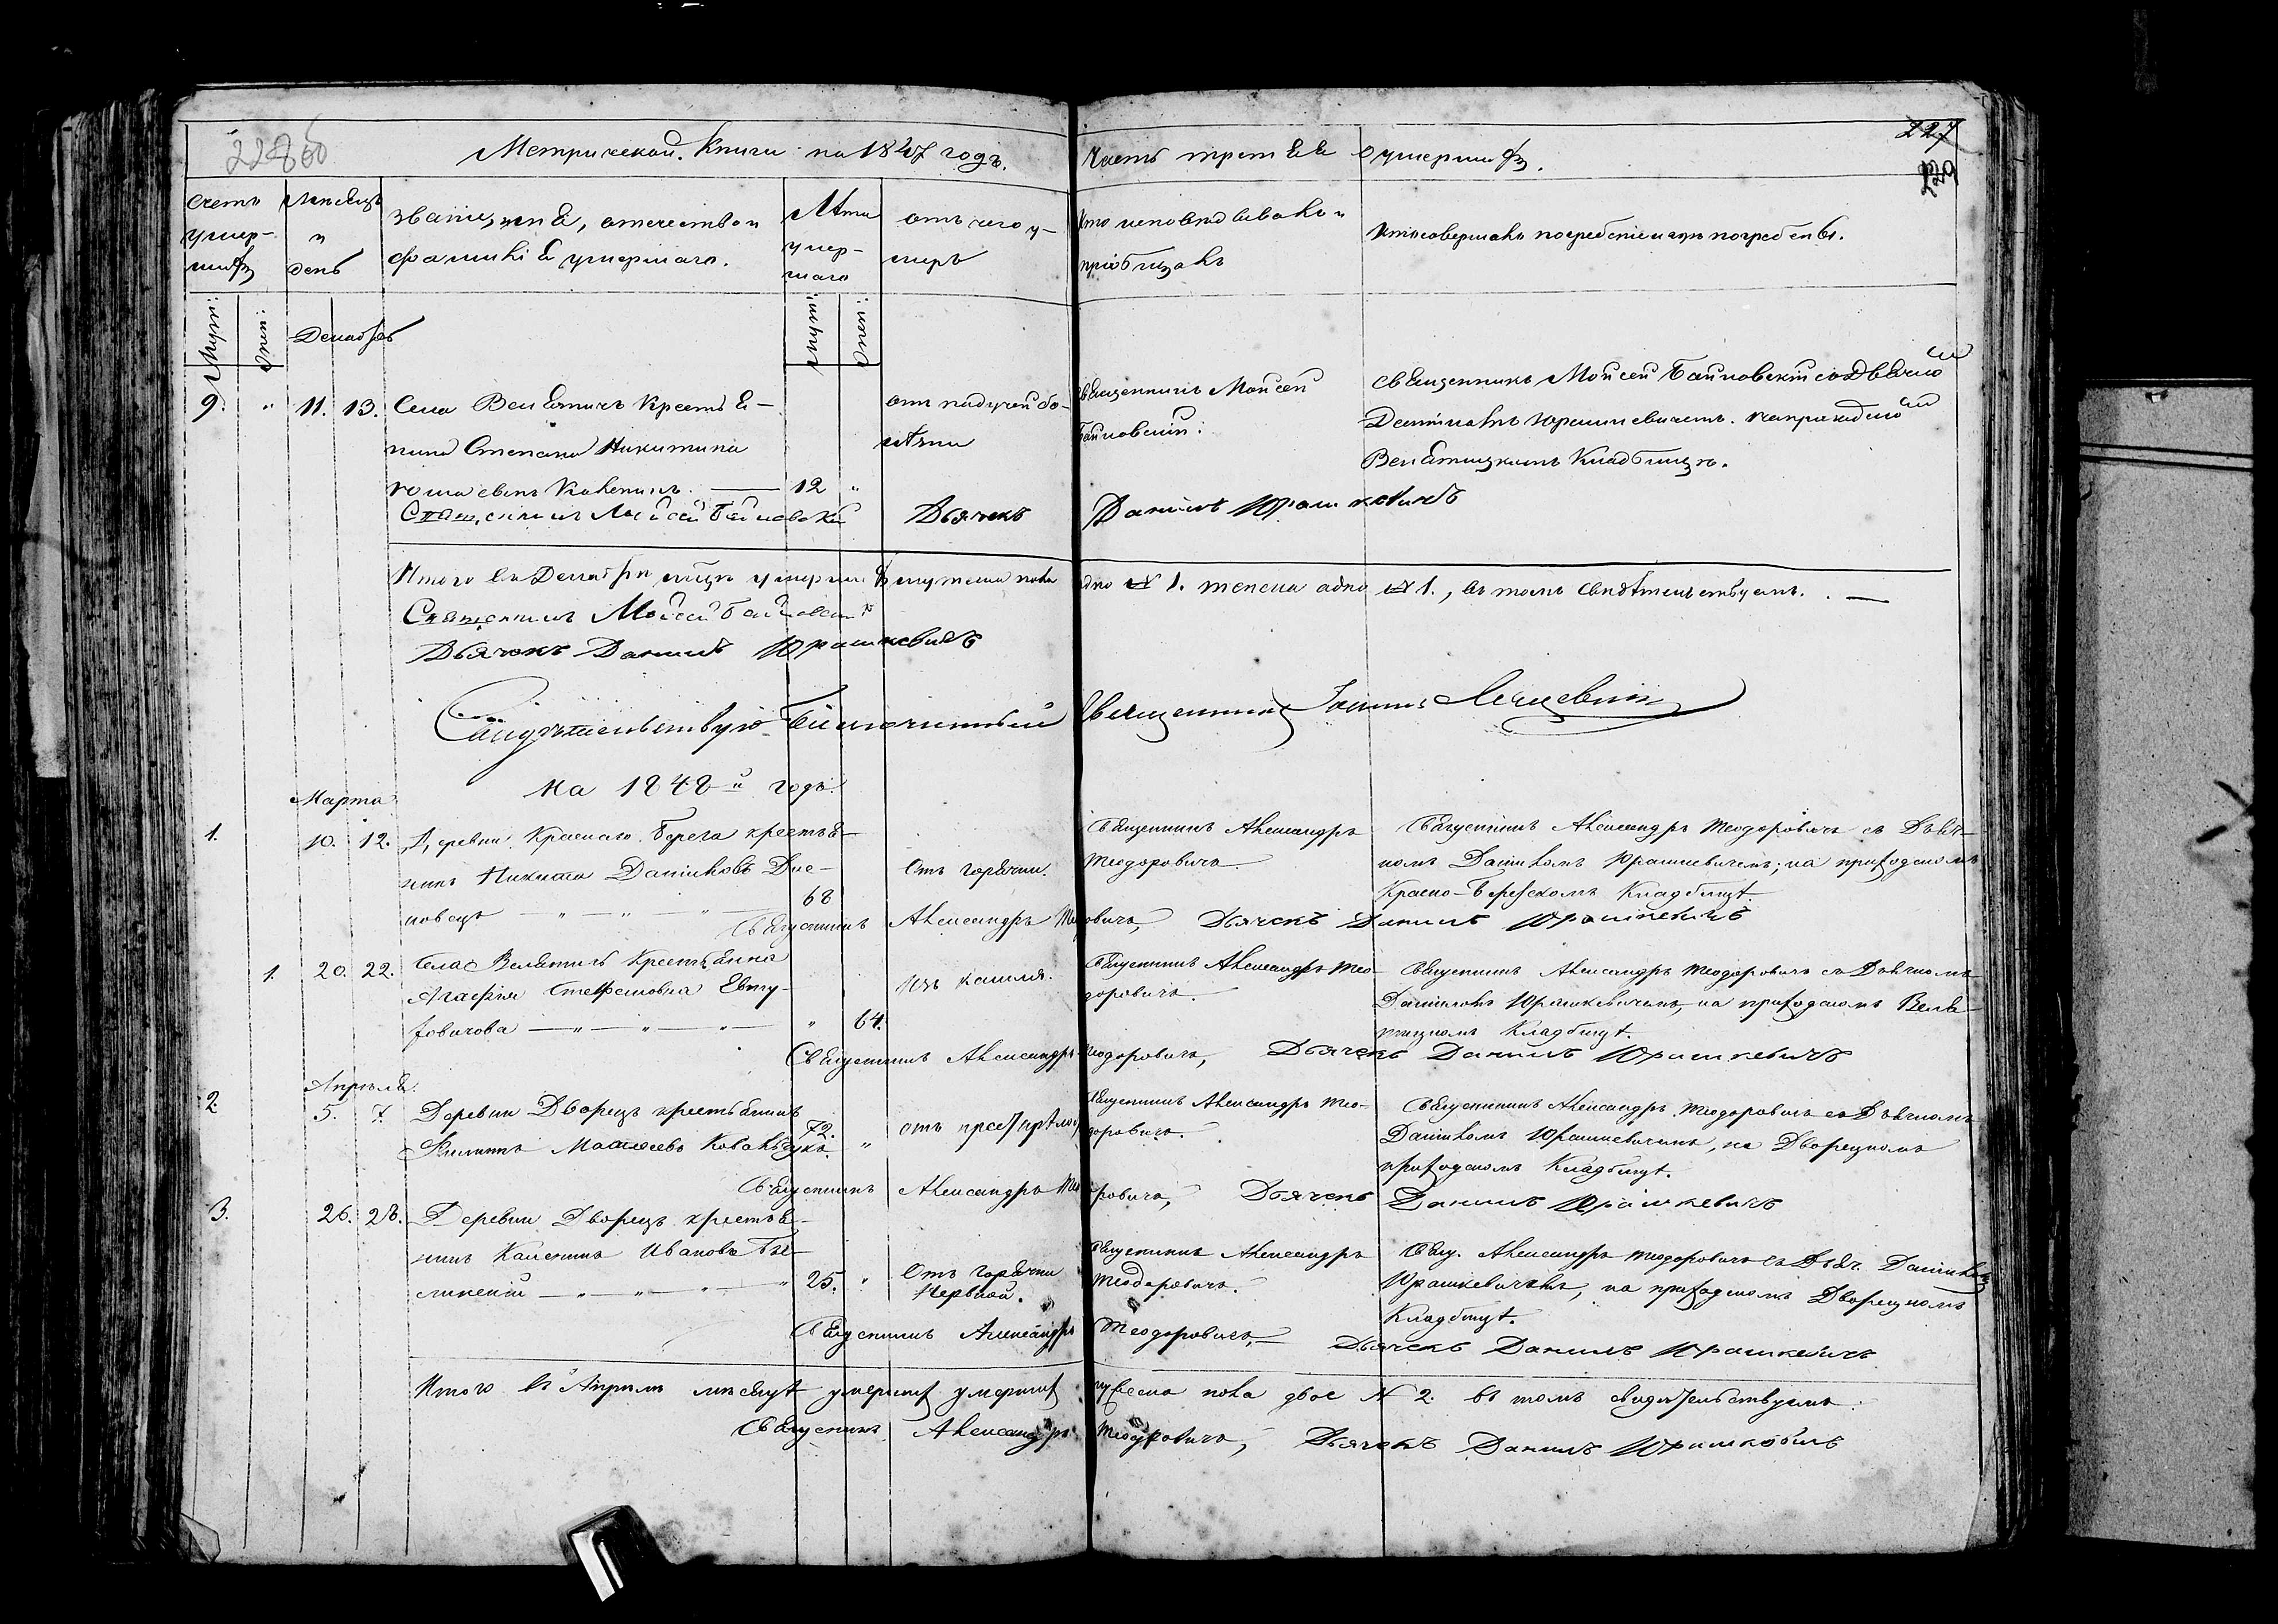 Метрической Книги на 1847 годъ.
Часть третья о умершихъ.
227
229
Счетъ умер-шихъ
Мѣсяцъ и день
званіе, имя, отечество и фамилія умершаго.
Лѣта умер-шаго
отъ чего у-меръ
Кто исповѣдывалъ и пріобщалъ
Кто совершалъ погребеніе и гдѣ погребены.
Муж: Жен:
Муж: Жен:
Декабрь
9. " 11. 13. Села Велятичъ Крестья-
нина Степана Никитина
сынъ — 12 "
отъ падучей бо-
лѣзни
Священникъ Моисей
Священникъ Моисей со Дьячко
Даніиломъ Юрашкевичемъ. на приходскомъ
Велятицкомъ Кладбищѣ.
Священникъ Моисей Дьячекъ Даніилъ Юрашкевичъ
Итого въ Декабрѣ мѣсяцѣ умерши мужеска пола одно № 1. женска одно № 1., въ томъ свидѣтельствуемъ. —
Священникъ Моисей
Дьячекъ Даніилъ Юрашкевичъ
Свидѣтельствую Благочинный Священникъ Іоаннъ
На 1848й годъ.
Марта
1. 10. 12. Деревни Краснаго Берега крестья-
нинъ Никита Даніиловъ Дис-
новецъ — " — " — " — 68
Отъ горячки.
Священникъ Александръ
Теодоровичъ
Священникъ Александръ Теодоровичъ съ Дьяч-
комъ Даніиломъ Юрашкевичемъ, на приходскомъ
Красно-Березскомъ Кладбищѣ.
Священникъ Александръ Теодоровичъ, Дьячекъ Даніилъ Юрашкевичъ
1. 20. 22. Села Велятичъ Крестьянка
Агафія Стефановна Евту-
ховичова — " — " — " — " 64.
Изъ кашля.
Священникъ Александръ Тео-
доровичъ.
Священникъ Александръ Теодоровичъ съ Дьячкомъ
Даніиломъ Юрашкевичемъ, на приходскомъ Веля-
тицкомъ Кладбищѣ.
Священникъ Александръ Теодоровичъ, Дьячекъ Даніилъ Юрашкевичъ
Апрѣля
2. 5. 7. Деревни Дворецъ крестьянинъ
Филиппъ Матѳеевъ Ковальчукъ. 72. "
отъ
Священникъ Александръ Тео-
доровичъ.
Священникъ Александръ Теодоровичъ съ Дьячкомъ
Даніиломъ Юрашкевичемъ, на Дворецкомъ
приходскомъ Кладбищѣ.
Священникъ Александръ Теодоровичъ, Дьячекъ Даніилъ Юрашкевичъ
3. 26. 28. Деревни Дворецъ крестья-
нинъ Ивановъ Бѣ-
линскій — " — " — " — " 25. "
Отъ горячки
Нервной.
Священникъ Александръ
Теодоровичъ.
Свящ. Александръ Теодоровичъ съ Дьяч. Даніиломъ
Юрашкевичемъ, на приходскомъ Дворецкомъ
Кладбищѣ.
Священникъ Александръ Теодоровичъ, — Дьячекъ Даніилъ Юрашкевичъ
Итого въ Апрѣлѣ мѣсяцѣ умершихъ умершихъ мужеска пола двое № 2. въ томъ свидѣтельствуемъ.
Священникъ Александръ Теодоровичъ, Дьячекъ Даніилъ Юрашкевичъ